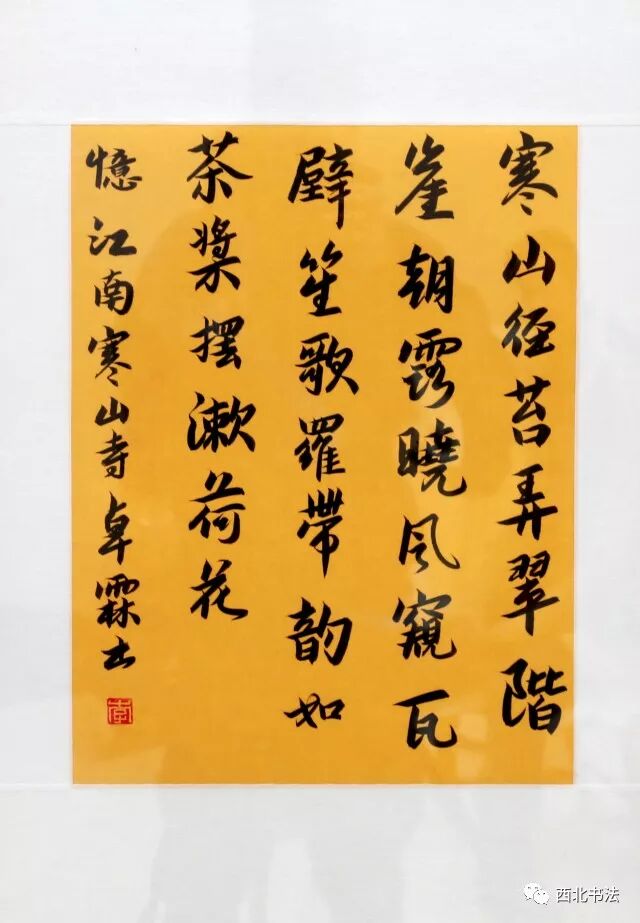 寒山径苔弄翠階
崔朝露曉風窺瓦
壁笙歌羅帶韵如
茶槳擺漱荷花
憶江南寒山寺卓霖书
西北书法